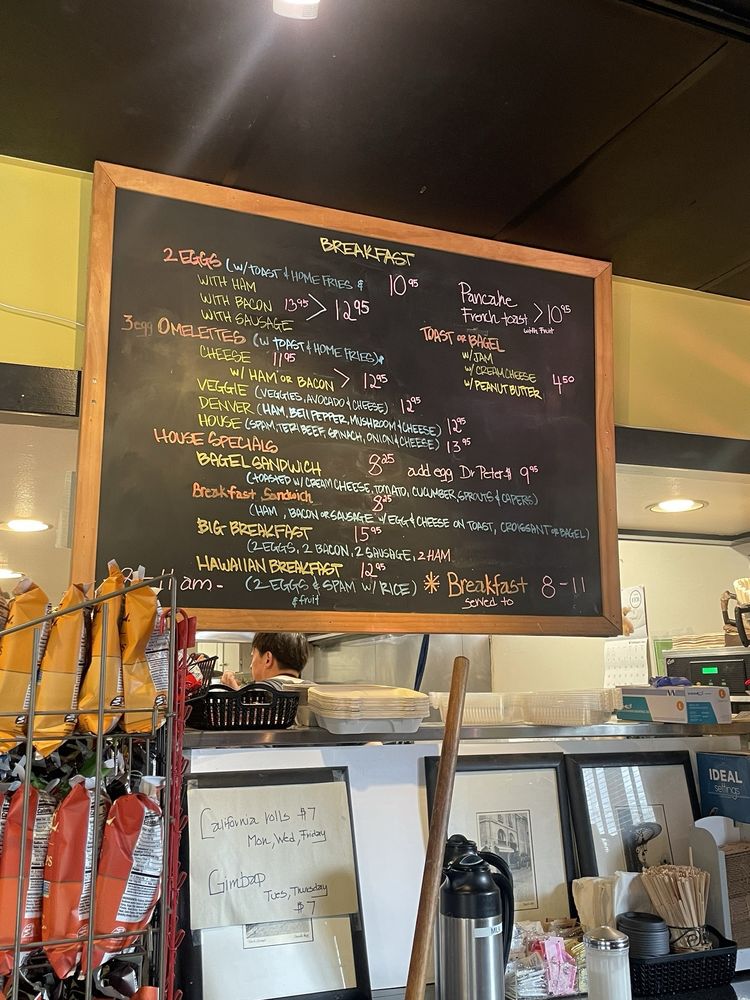 BREAKFAST
2 EGGS (W/ TOAST & HOME FRIES) 10.95
WITH HAM
WITH BACON 13.95 > 12.95
WITH SAUSAGE
3 egg OMELETTES (W/ TOAST & HOME FRIES)
CHEESE 11.95
W/ HAM OR BACON > 12.95
VEGGIE (VEGGIES, AVOCADO & CHEESE) 12.95
DENVER (HAM, BELL PEPPER, MUSHROOM & CHEESE) 12.95
HOUSE (SPAM, TERI BEEF, SPINACH, ONION & CHEESE) 13.95
HOUSE SPECIALS
BAGEL SANDWICH 8.25 add egg Dr Peter $ 9.95
(TOASTED W/ CREAM CHEESE, TOMATO, CUCUMBER, SPROUTS & CAPERS)
Breakfast Sandwich 8.25
(HAM, BACON OR SAUSAGE W/ EGG & CHEESE ON TOAST, CROISSANT OR BAGEL)
BIG BREAKFAST 15.95
(2 EGGS, 2 BACON, 2 SAUSAGE, 2 HAM
HAWAIIAN BREAKFAST 12.95
(2 EGGS & SPAM W/ RICE)
& fruit
Pancake
French toast > 10.95
with Fruit
TOAST OR BAGEL
W/ JAM
W/ CREAM CHEESE
W/ PEANUT BUTTER 4.50
* Breakfast 8-11
served to
am -
California rolls $7
Mon, Wed, Friday
Gimbap
Tues, Thursday
$7
IDEAL
settings